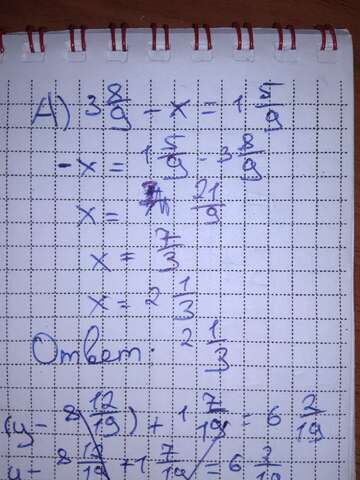 А) 3 8/9 - x = 1 5/9
- x = 1 5/9 - 3 8/9
x = 21/9
x = 7/3
x = 2 1/3
Ответ: 2 1/3
(y - 8 12/19) + 1 7/19 = 6 3/19
y - 8 12/19 + 1 7/19 = 6 3/19